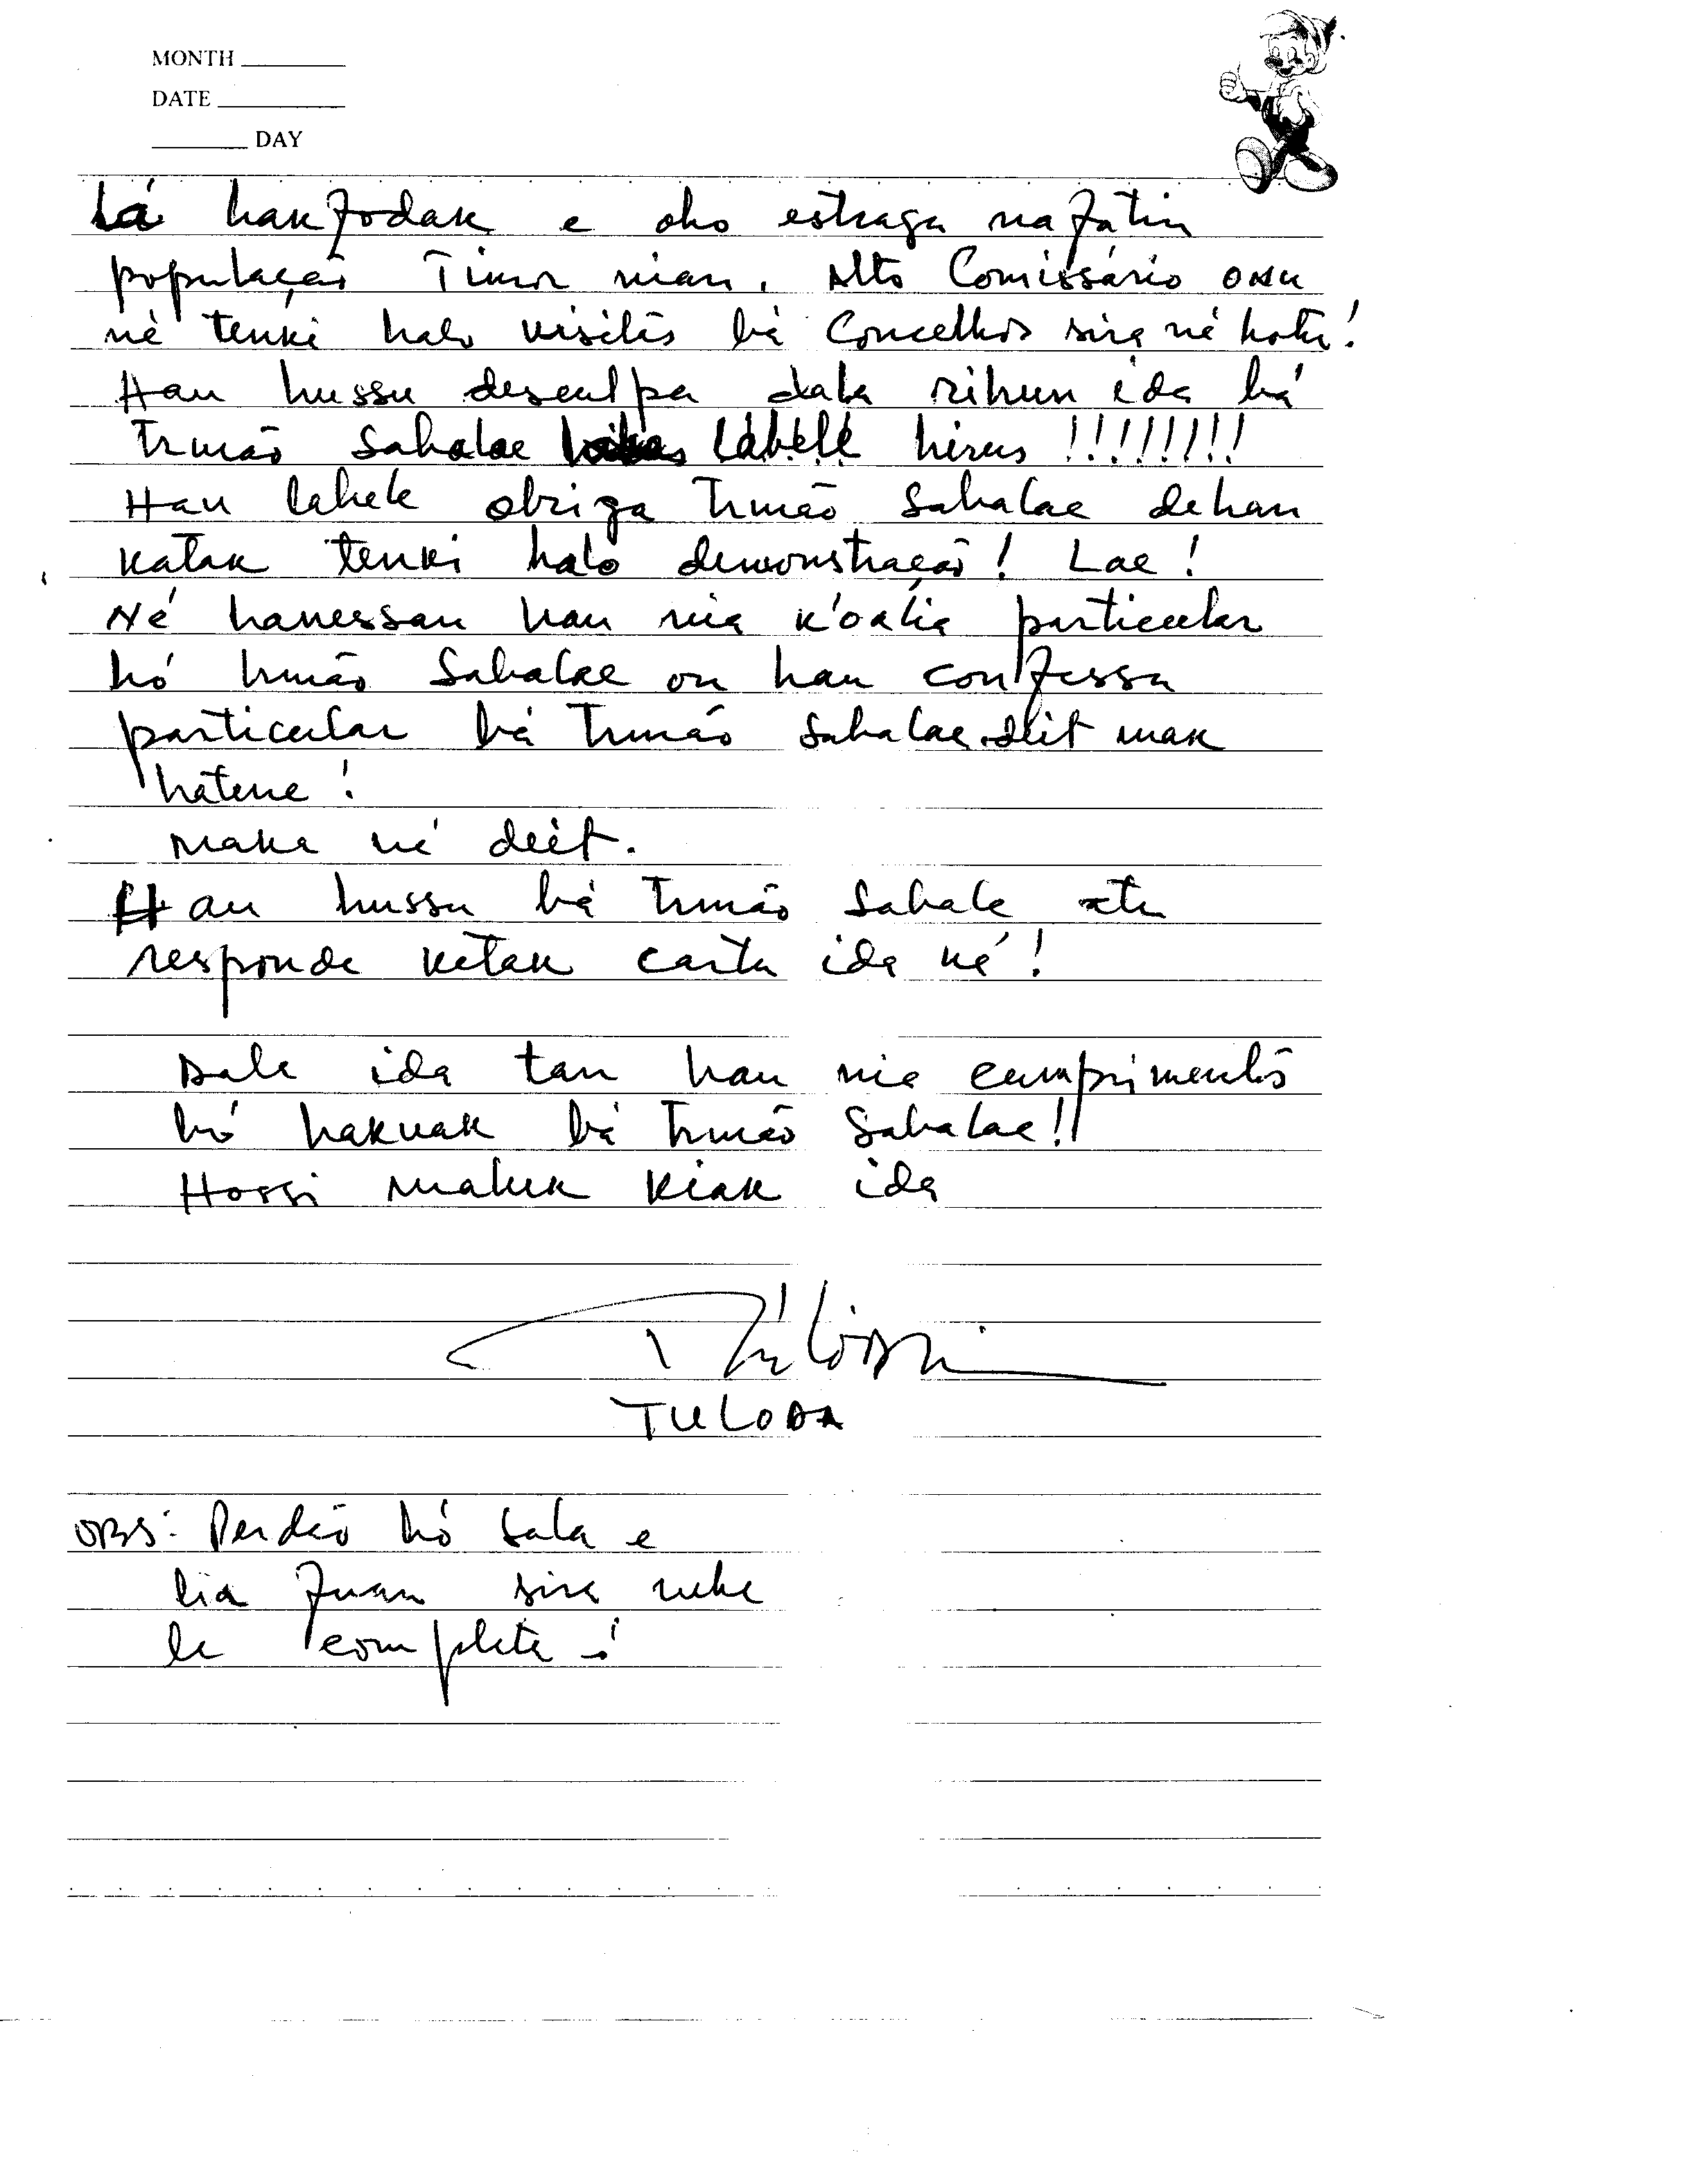 MONTH
DATE
DAY
Lá hakfodak e oho estraga nafátin
população Timor nian. Alto Comissário ONU
né tenki halo visitas bá Concelhos sira né hotu!
Hau hussu desculpa dala rihun ida bá
Irmão Sabalae labele hirus !!!!!!!!
Hau labele obriga Irmão Sabalae dehan
katak tenki halo demonstração! Lae!
Né hanessan hau nia k'oalia particular
hó Irmão Sabalae ou hau confessa
particular bá Irmão Sabalae deit mak
hatene!
Maka né deit.
Hau hussu bá Irmão Sabale atu
responde ketak carta ida né!
Dala ida tan hau nia cumprimentos
hó hakuak bá Irmão Sabalae!!
Hossi maluk kiak ida
TULODA
OBS: Perdão hó sala e
lia fuan sira nebe
la completa!